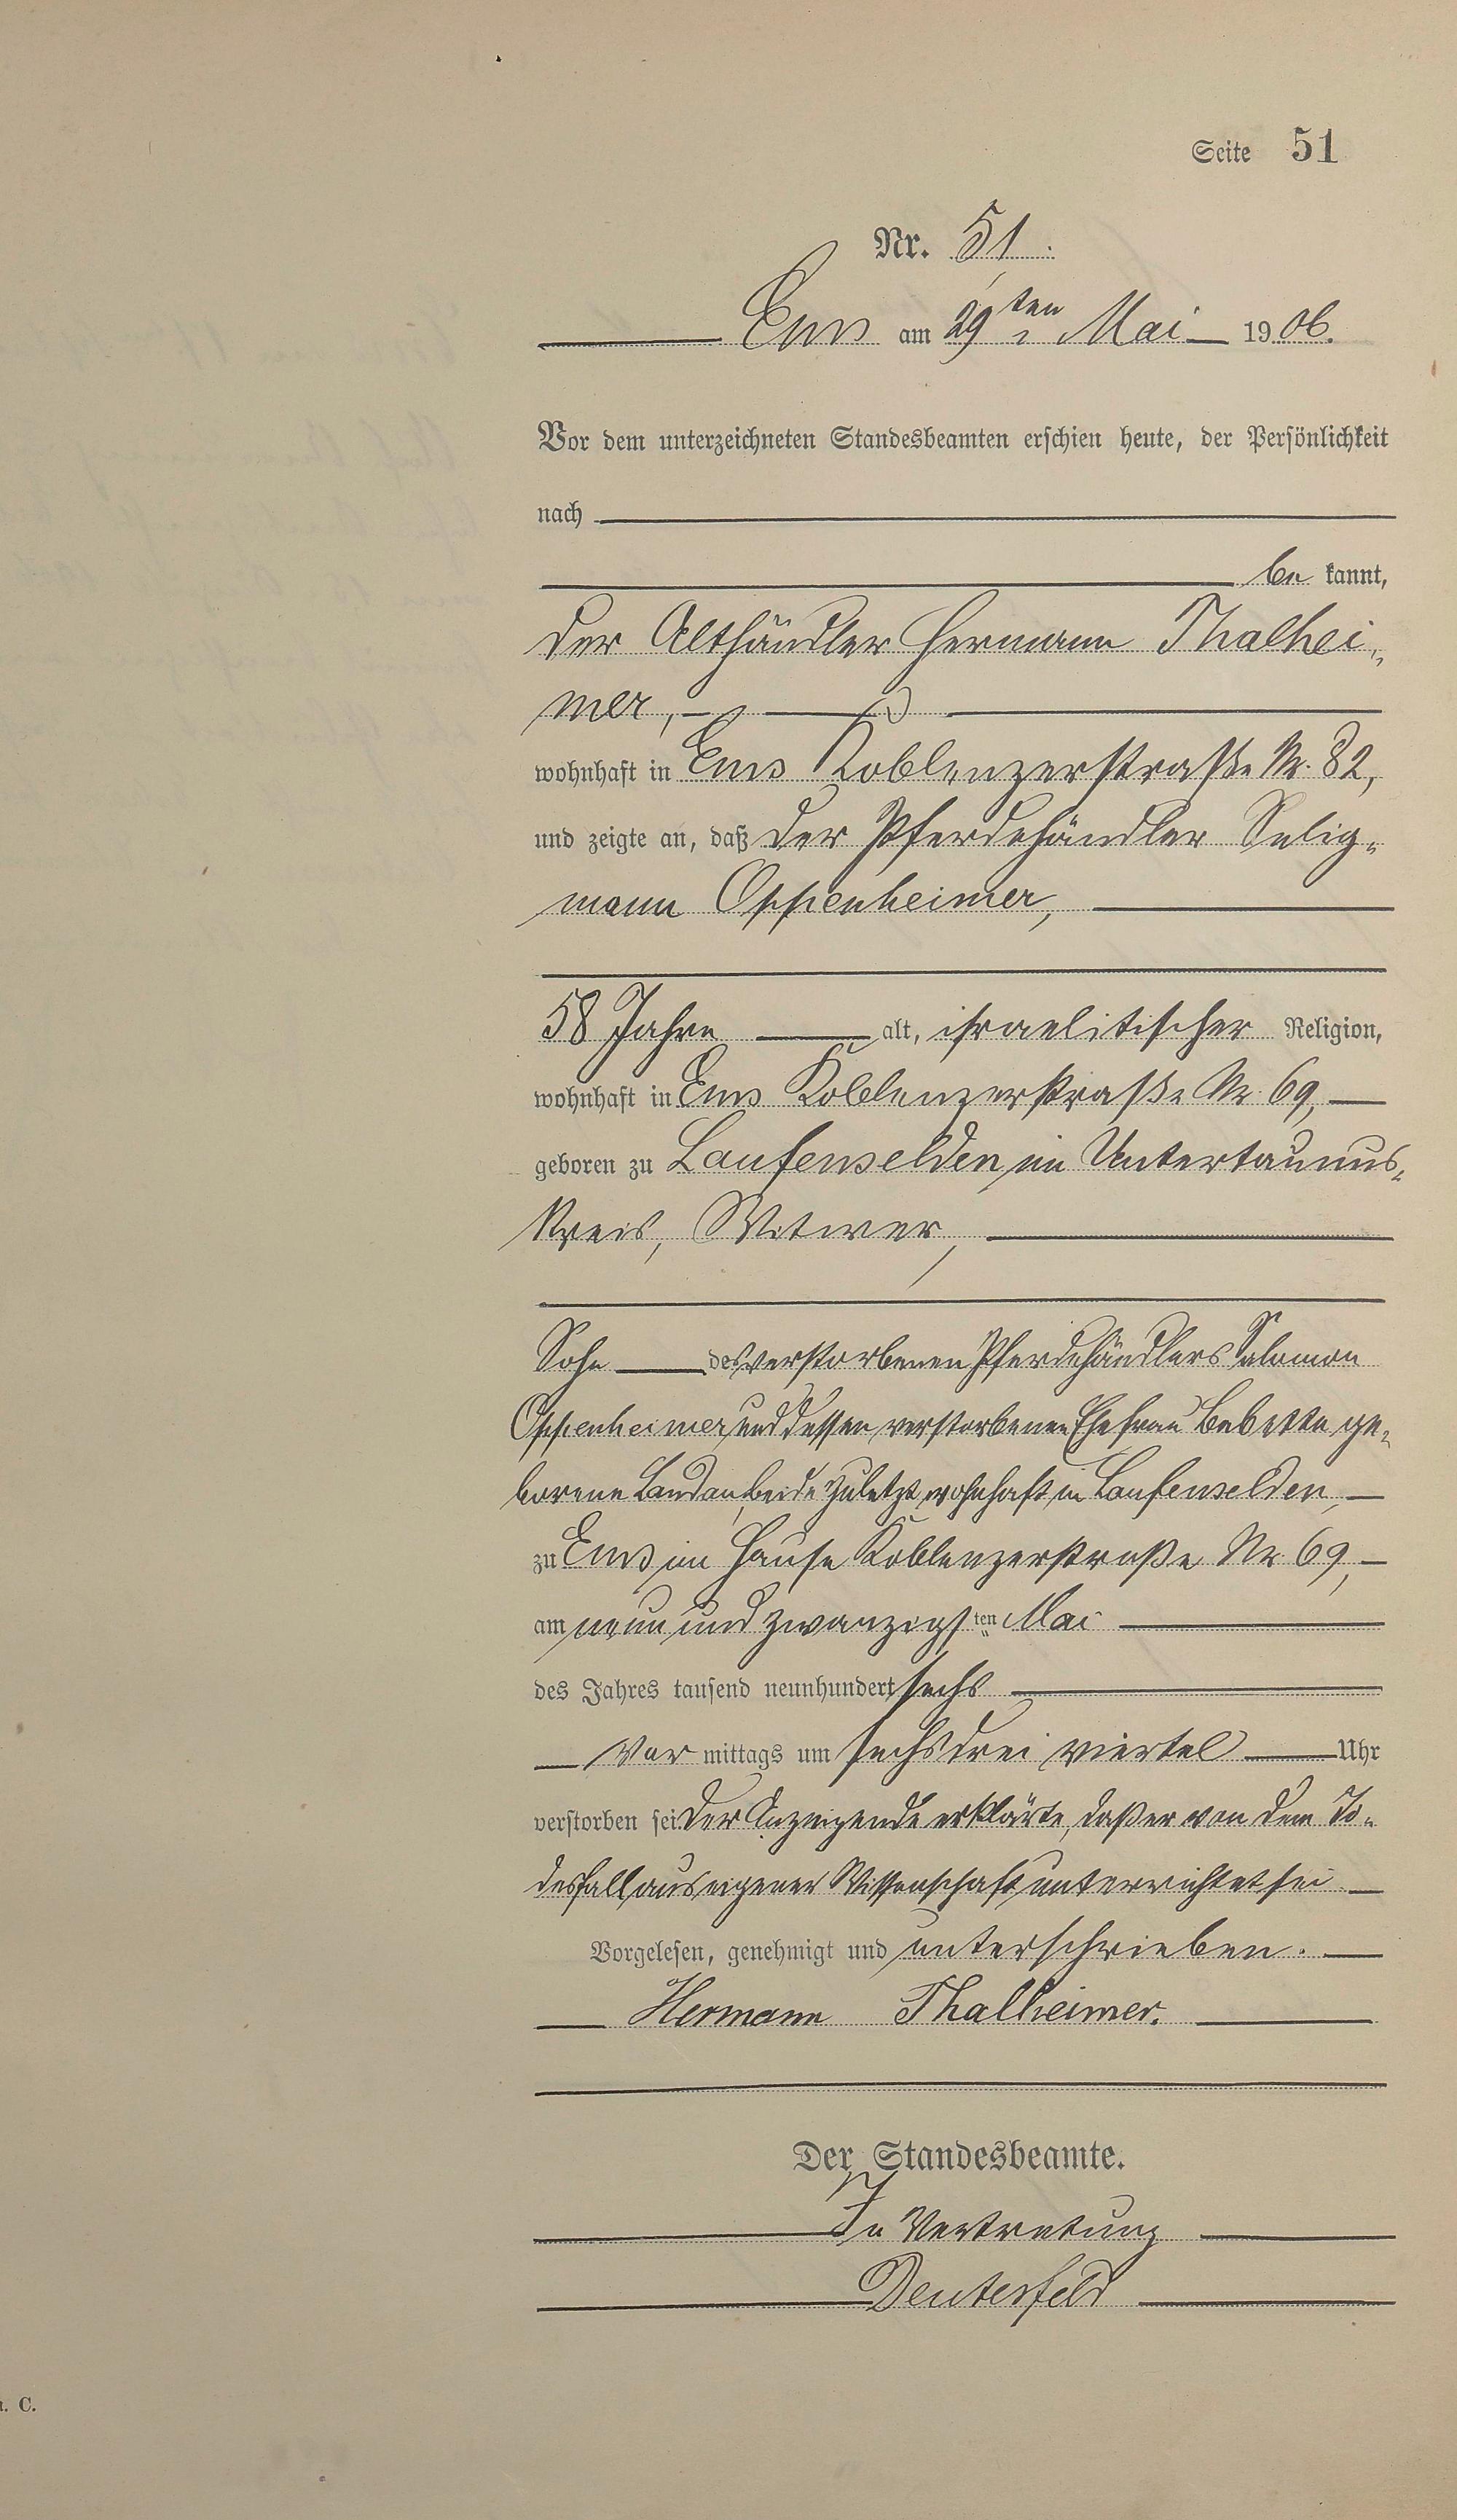 Seite 51
Nr. 51.
Ems am 29ten Mai 1906.
Vor dem unterzeichneten Standesbeamten erschien heute, der Persönlichkeit
nach
be kannt,
der Althändler Hermann Thalhei-
mer,
wohnhaft in Ems Koblenzerstraße Nr. 82,
und zeigte an, daß der Pferdehändler Selig-
mann Oppenheimer,
58 Jahre alt, israelitischer Religion,
wohnhaft in Ems Koblenzerstraße Nr. 69,
geboren zu Laufenselden im Untertaunus-
kreis, Witwer,
Sohn des verstorbenen Pferdehändlers Salomon
Oppenheimer und dessen verstorbenen Ehefrau Babette ge-
borene Landau, beide zuletzt wohnhaft in Laufenselden,
zu Ems im Hause Koblenzerstraße Nr. 69,
am neun und zwanzigsten Mai
des Jahres tausend neunhundert sechs
Vor mittags um sechs drei viertel Uhr
verstorben sei. Der Anzeigende erklärte, daß er von dem To-
desfall aus eigener Wissenschaft unterrichtet sei
Vorgelesen, genehmigt und unterschrieben.
Hermann Thalheimer.
Der Standesbeamte.
In Vertretung
C.